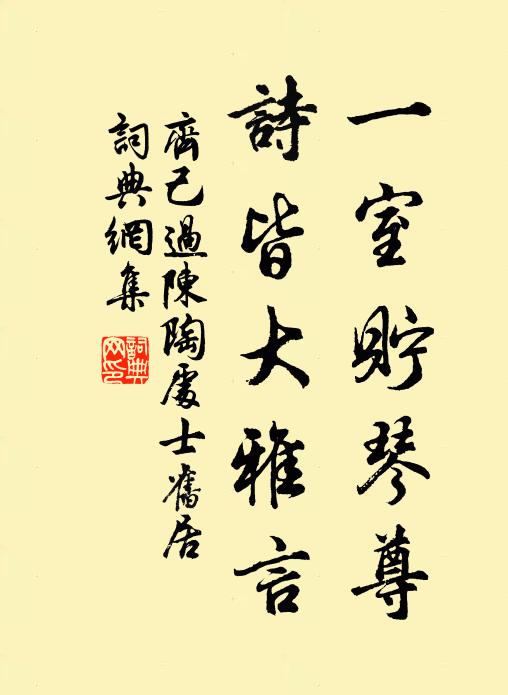 一室貯琴尊
詩皆大雅言
齊己過陳陶處士舊居
詞典網集
詞典網印